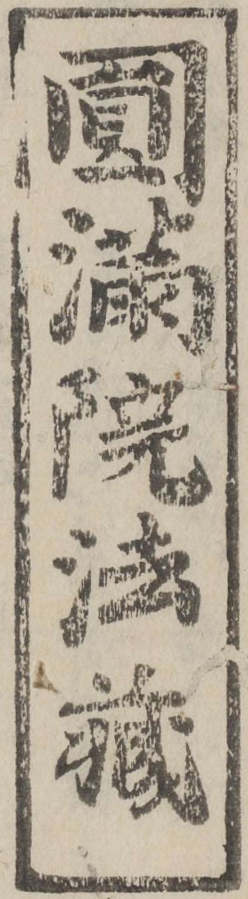 圓滿院法藏